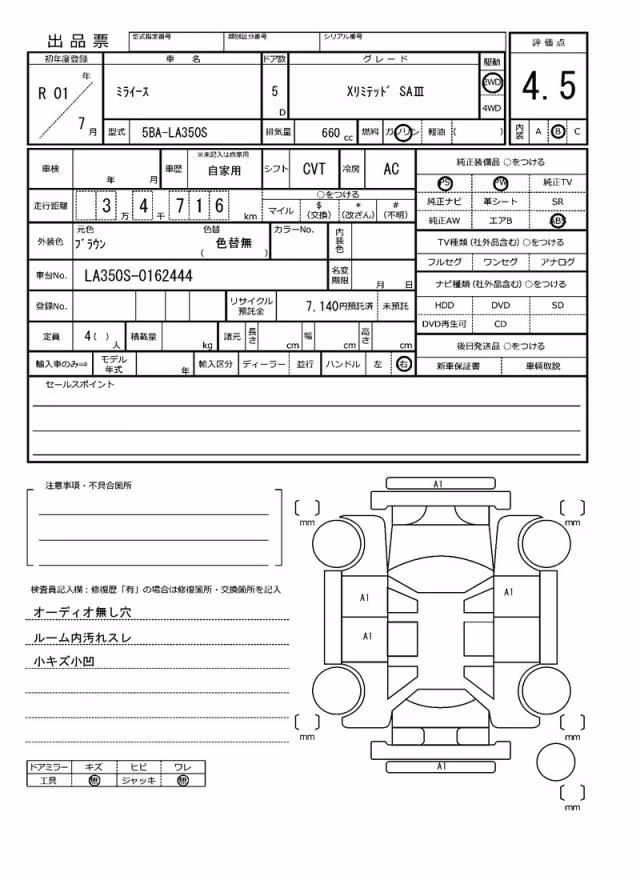 出品票
型式指定番号 類別区分番号 シリアル番号
初年度登録 車名 ドア数 グレード 駆動 評価点
R 01 年 7 月 ミライース 5 D Xリミテッド SAⅢ 2WD 4WD 4.5
型式 5BA-LA350S 排気量 660 cc 燃料 ガソリン 軽油 ( ) 内装 A B C
車検 年 月 車歴 ※未記入は自家用 自家用 シフト CVT 冷房 AC
純正装備品 ○をつける
PS PW 純正TV
純正ナビ 革シート SR
純正AW エアB ABS
走行距離 3 万 4 千 7 1 6 km ○をつける
マイル $ (交換) * (改ざん) # (不明)
外装色 元色 ブラウン 色替 色替無 ( ) カラーNo. 内装色
TV種類 (社外品含む) ○をつける
フルセグ ワンセグ アナログ
車台No. LA350S-0162444 名変期限 月 日
ナビ種類 (社外品含む) ○をつける
登録No. リサイクル預託金 7,140円預託済 未預託
HDD DVD SD
DVD再生可 CD
定員 4 ( ) 人 積載量 kg 諸元 長さ cm 幅 cm 高さ cm
後日発送品 ○をつける
輸入車のみ⇒ モデル年式 年 輸入区分 ディーラー 並行 ハンドル 左 右
新車保証書 車輌取説
セールスポイント
注意事項・不具合箇所
検査員記入欄：修復歴「有」の場合は修復箇所・交換箇所を記入
オーディオ無し穴
ルーム内汚れスレ
小キズ小凹
ドアミラー キズ ヒビ ワレ
工具 無 ジャッキ 無
A1
mm mm
A1 A1
A1
mm mm
A1
mm